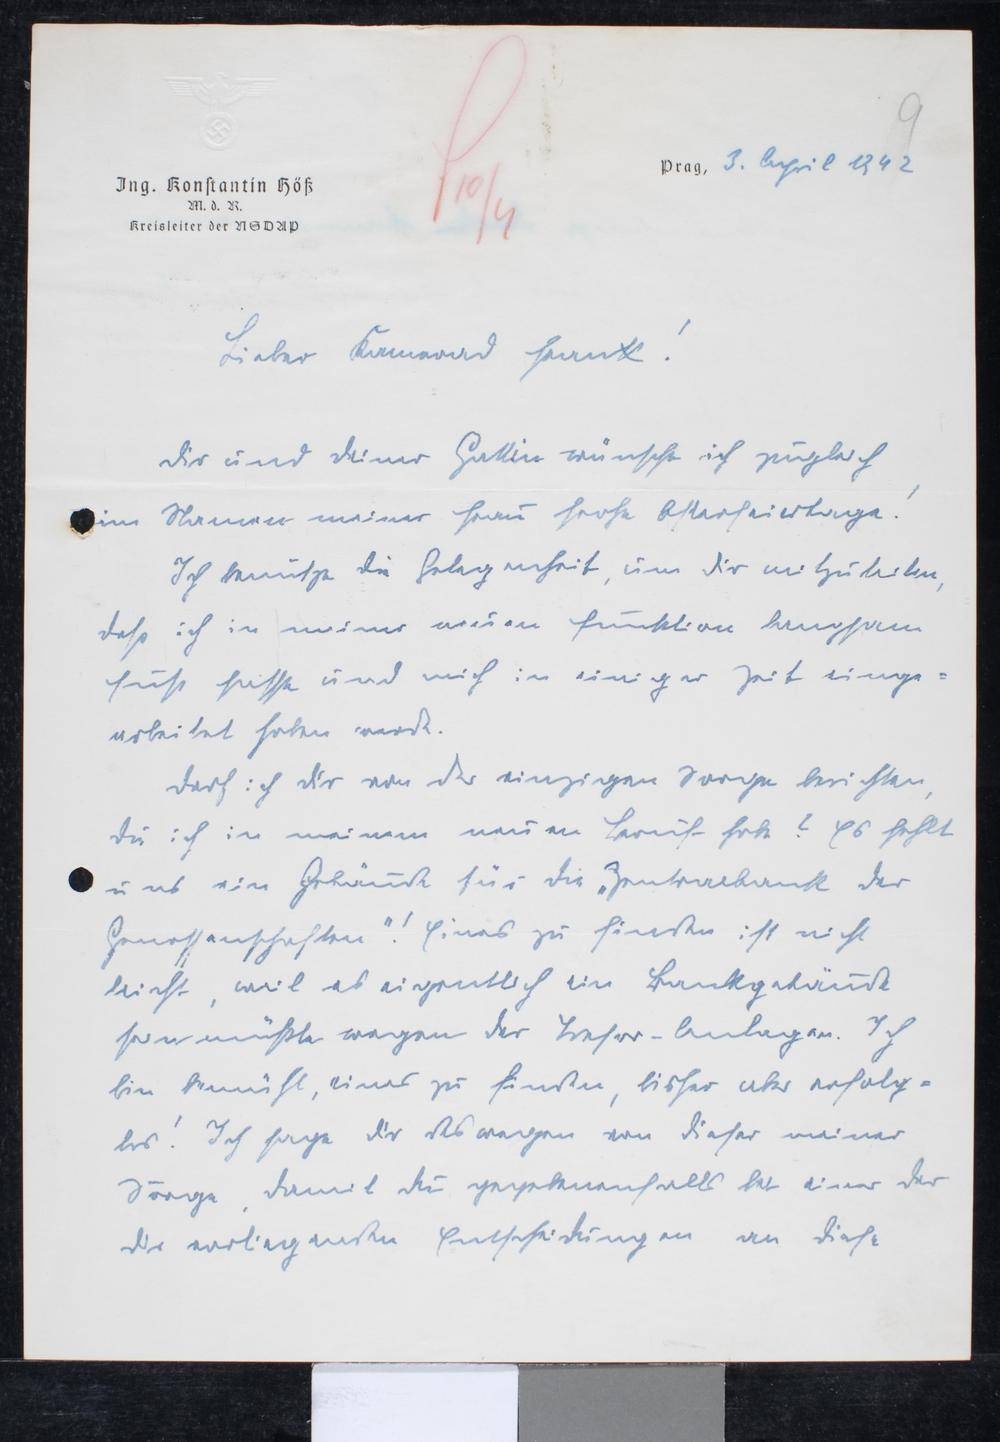 9
Prag, 3. April 1942
Ing. Konstantin Höß
M. d. R.
Kreisleiter der NSDAP
10/4
Lieber Kamerad Frank!
Dir und deiner Gattin wünsche ich zugleich
im Namen meiner Frau frohe Osterfeiertage!
Ich benütze die Gelegenheit, um dir mitzuteilen,
daß ich in meiner neuen Funktion langsam
Fuß fasse und mich in einiger Zeit einge=
arbeitet haben werde.
Darf ich dir von der einzigen Sorge berichten,
die ich in meinem neuen Beruf habe? Es fehlt
uns ein Gebäude für die „Zentralbank der
Genossenschaften"! Eines zu finden ist nicht
leicht, weil es eigentlich ein Bankgebäude
sein müßte wegen der Tresor-Anlagen. Ich
bin bemüht, eines zu finden, bisher aber erfolg=
los! Ich sage dir deswegen von dieser meiner
Sorge, damit du gegebenenfalls bei einer der
dir vorliegenden Entscheidungen an diese